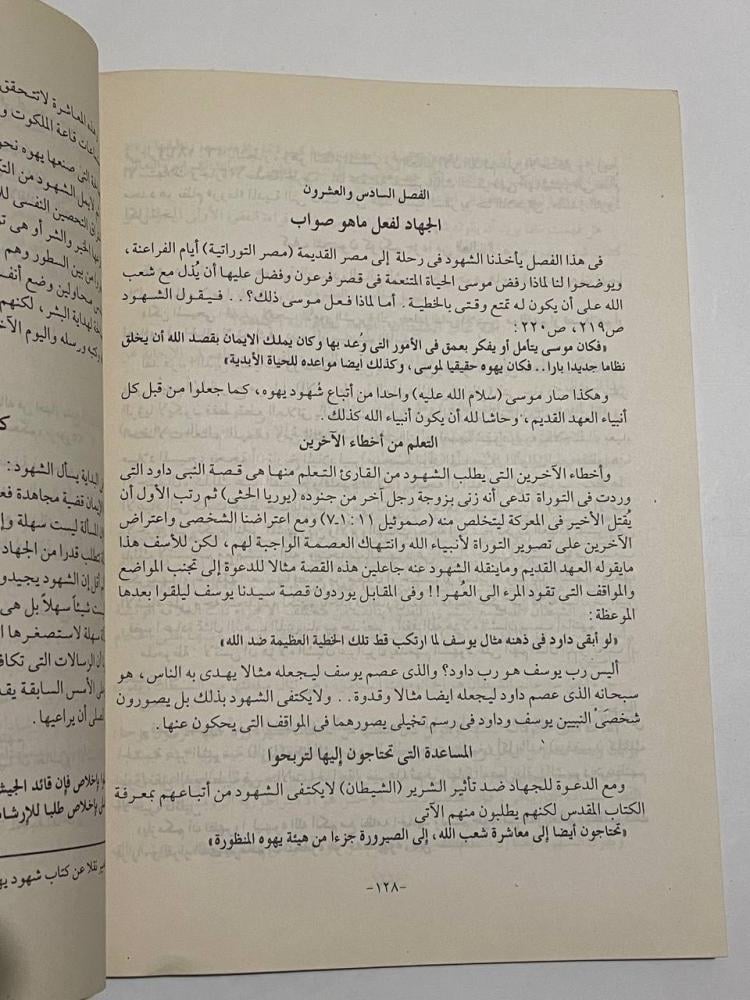 الفصل السادس والعشرون
الجهاد لفعل ماهو صواب
فى هذا الفصل يأخذنا الشهود فى رحلة إلى مصر القديمة (مصر التوراتية) أيام الفراعنة ،
ويوضحوا لنا لماذا رفض موسى الحياة المتنعمة فى قصر فرعون وفضل عليها أن يُذل مع شعب
الله على أن يكون له تمتع وقتى بالخطية . أما لماذا فعل موسى ذلك؟ . . فيقول الشهود
ص٢١٩، ص٢٢٠:
«فكان موسى يتأمل أو يفكر بعمق فى الأمور التى وُعد بها وكان يملك الايمان بقصد الله أن يخلق
نظاما جديدا بارا . . فكان يهوه حقيقيا لموسى، وكذلك ايضا مواعده للحياة الأبدية»
وهكذا صار موسى (سلام الله عليه) واحدا من أتباع شُهود يهوه، كما جعلوا من قبل كل
أنبياء العهد القديم، وحاشا لله أن يكون أنبياء الله كذلك .
التعلم من أخطاء الآخرين
وأخطاء الآخرين التى يطلب الشهود من القارئ التعلم منها هى قصة النبى داود التى
وردت فى التوراة تدعى أنه زنى بزوجة رجل آخر من جنوده (يوريا الحثى) ثم رتب الأول أن
يُقتل الأخير فى المعركة ليتخلص منه (صموئيل ١١: ١-٧) ومع اعتراضنا الشخصى واعتراض
الآخرين على تصوير التوراة لأنبياء الله وانتهاك العصمة الواجبة لهم، لكن للأسف هذا
مايقوله العهد القديم وماينقله الشهود عنه جاعلين هذه القصة مثالا للدعوة إلى تجنب المواضع
والمواقف التى تقود المرء الى العُهر!! وفى المقابل يوردون قصة سيدنا يوسف ليلقوا بعدها
الموعظة:
«لو أبقى داود فى ذهنه مثال يوسف لما ارتكب قط تلك الخطية العظيمة ضد الله»
أليس رب يوسف هو رب داود؟ والذى عصم يوسف ليجعله مثالا يهدى به الناس، هو
سبحانه الذى عصم داود ليجعله ايضا مثالا وقدوة . . ولايكتفى الشهود بذلك بل يصورون
شخصَىّ النبيين يوسف وداود فى رسم تخيلى يصورهما فى المواقف التى يحكون عنها .
المساعدة التى تحتاجون إليها لتربحوا
ومع الدعوة للجهاد ضد تأثير الشرير (الشيطان) لايكتفى الشهود من أتباعهم بمعرفة
الكتاب المقدس لكنهم يطلبون منهم الآتى
«تحتاجون أيضا إلى معاشرة شعب الله، إلى الصيرورة جزءا من هيئة يهوه المنظورة»
-١٢٨-